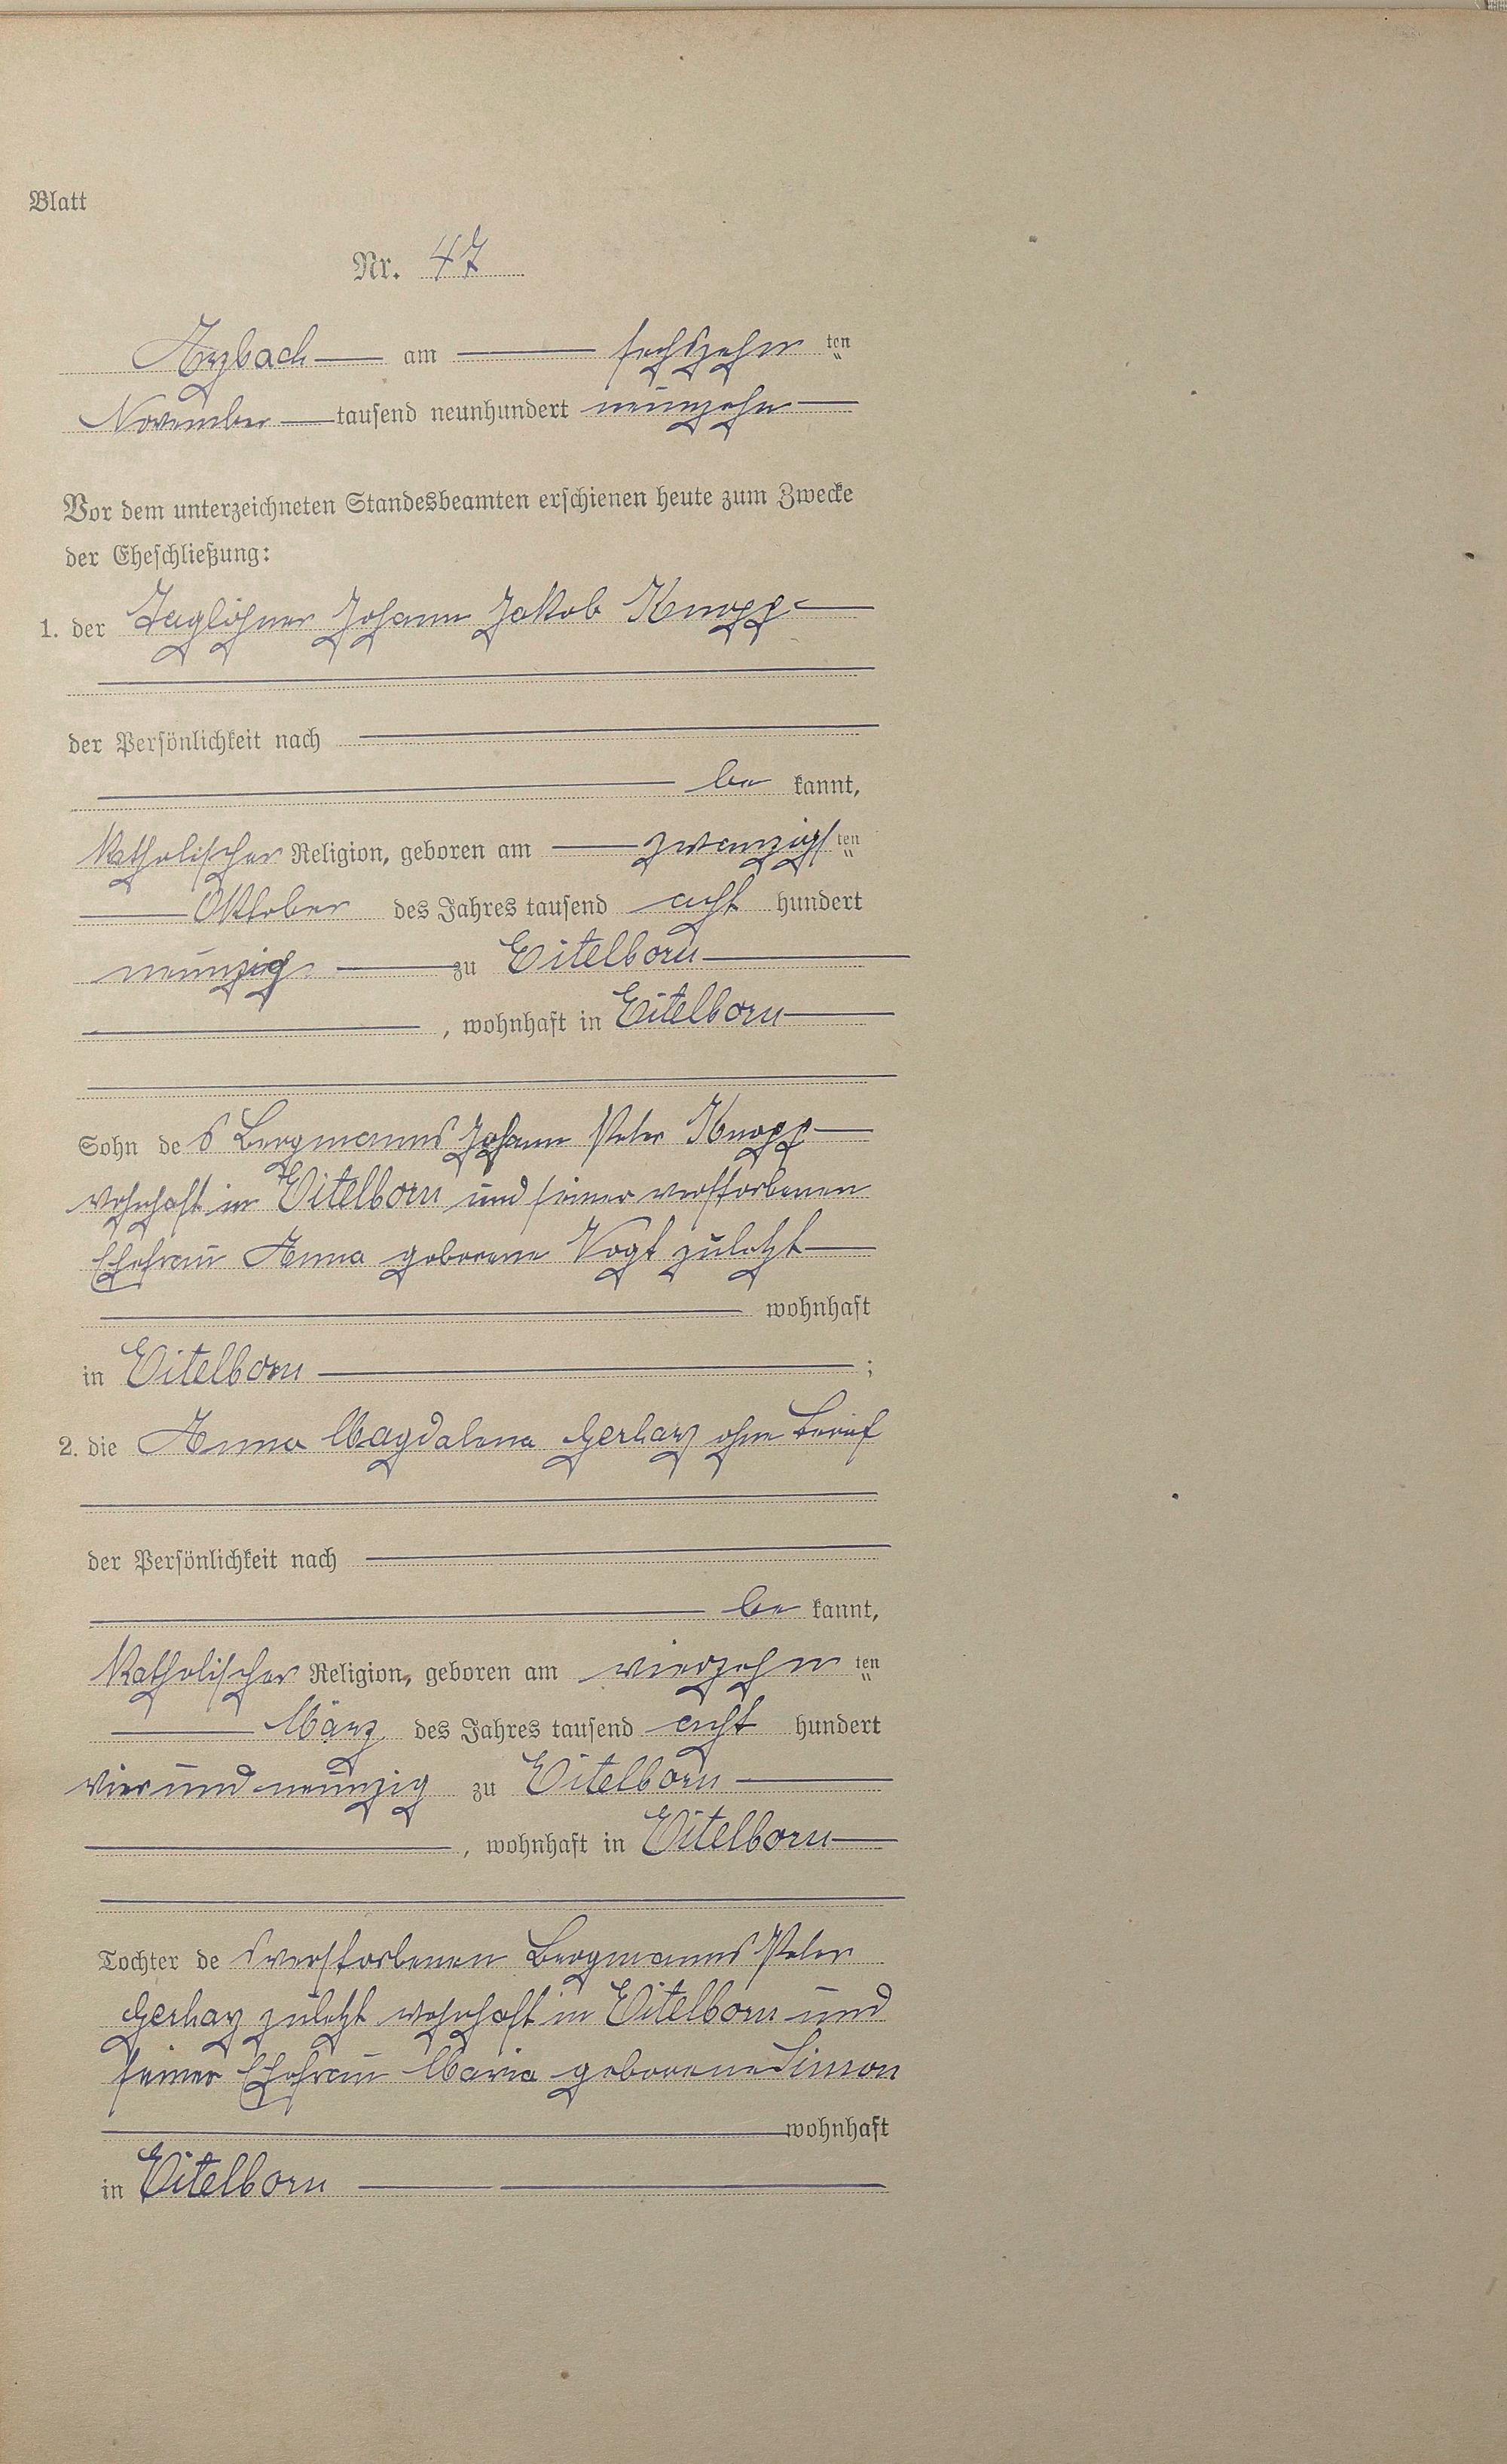 Blatt
Nr. 47
Arzbach am sechszehn ten
November tausend neunhundert neunzehn
Vor dem unterzeichneten Standesbeamten erschienen heute zum Zwecke
der Eheschließung:
1. der Taglöhner Johann Jakob Knopp
der Persönlichkeit nach
be kannt,
katholischer Religion, geboren am zwanzigs ten
Oktober des Jahres tausend acht hundert
neunzig zu Eitelborn
, wohnhaft in Eitelborn
Sohn de s Bergmanns Johann Peter Knopp
wohnhaft in Eitelborn und seiner verstorbenen
Ehefrau Anna geborene Vogt zuletzt
wohnhaft
in Eitelborn ;
2. die Anna Magdalena Gerharz ohne Beruf
der Persönlichkeit nach
be kannt,
katholischer Religion, geboren am vierzehn ten
März des Jahres tausend acht hundert
vierundneunzig zu Eitelborn
, wohnhaft in Eitelborn
Tochter de s verstorbenen Bergmanns Peter
Gerharz zuletzt wohnhaft in Eitelborn und
seiner Ehefrau Maria geborene Simon
wohnhaft
in Eitelborn